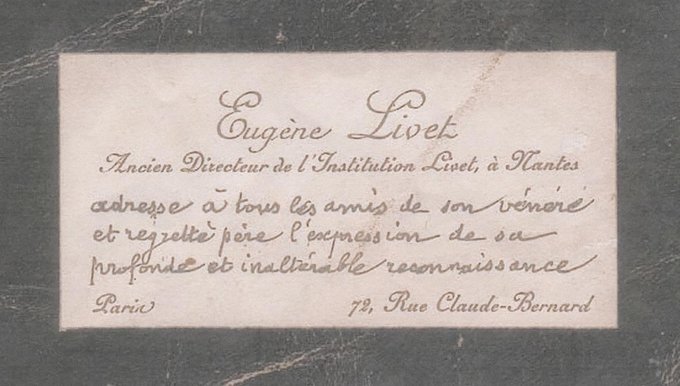 Eugène Livet
Ancien Directeur de l'Institution Livet, à Nantes
adresse à tous les amis de son vénéré
et regretté père l'expression de sa
profonde et inaltérable reconnaissance
Paris 72, Rue Claude-Bernard